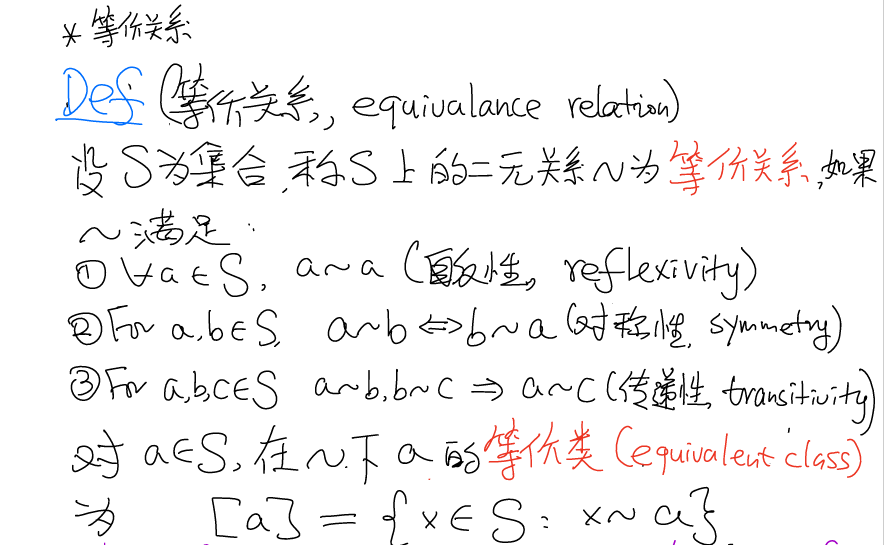 * 等价关系
Def (等价关系, equivalance relation)
设S为集合,称S上的二元关系~为等价关系,如果
~满足:
① ∀a∈S, a~a (自反性, reflexivity)
② For a,b∈S, a~b ⇔ b~a (对称性, symmetry)
③ For a,b,c∈S a~b,b~c ⇒ a~c (传递性, transitivity)
对 a∈S, 在~下 a 的等价类 (equivalent class)
为 [a] = {x∈S: x~a}